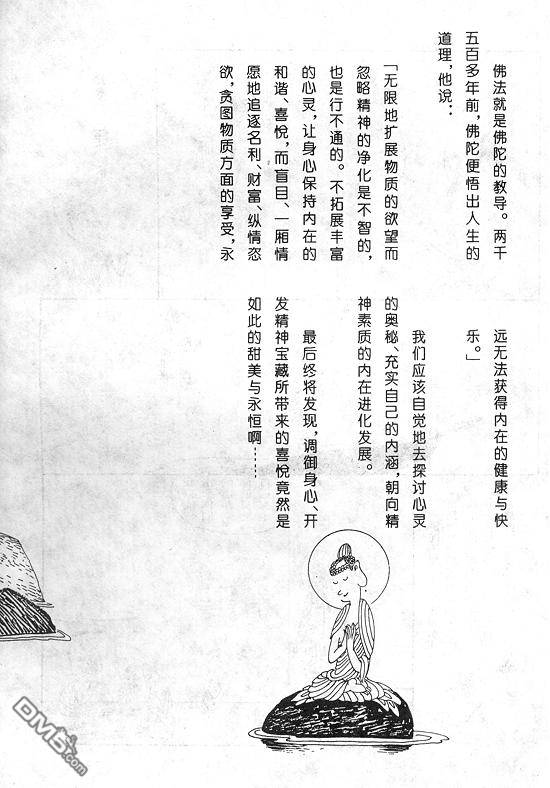 佛法就是佛陀的教导。两千
五百多年前，佛陀便悟出人生的
道理，他说：
「无限地扩展物质的欲望而
忽略精神的净化是不智的，
也是行不通的。不拓展丰富
的心灵，让身心保持内在的
和谐、喜悦，而盲目、一厢情
愿地追逐名利、财富、纵情恣
欲，贪图物质方面的享受，永
远无法获得内在的健康与快
乐。」
我们应该自觉地去探讨心灵
的奥秘、充实自己的内涵，朝向精
神素质的内在进化发展。
最后终将发现，调御身心、开
发精神宝藏所带来的喜悦竟然是
如此的甜美与永恒啊……
DM5.com